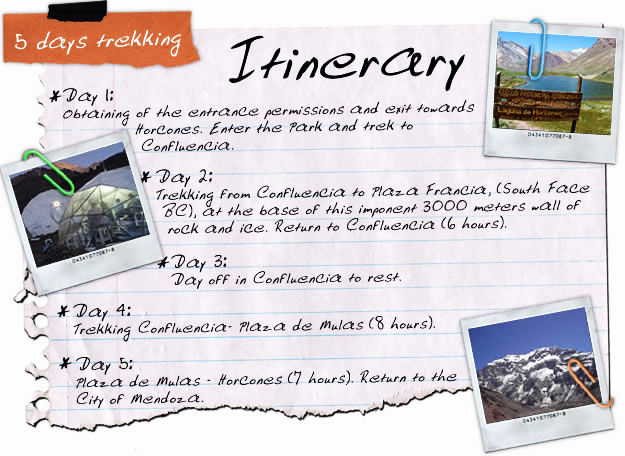 5 days trekking
Itinerary
* Day 1:
Obtaining of the entrance permissions and exit towards
Horcones. Enter the Park and trek to
Confluencia.
* Day 2:
Trekking from Confluencia to Plaza Francia, (South Face
BC), at the base of this imponent 3000 meters wall of
rock and ice. Return to Confluencia (6 hours).
* Day 3:
Day off in Confluencia to rest.
* Day 4:
Trekking Confluencia- Plaza de Mulas (8 hours).
* Day 5:
Plaza de Mulas - Horcones (7 hours). Return to the
City of Mendoza.
Laguna de Horcones
04341077087-8
04341077087-8
04341077087-8